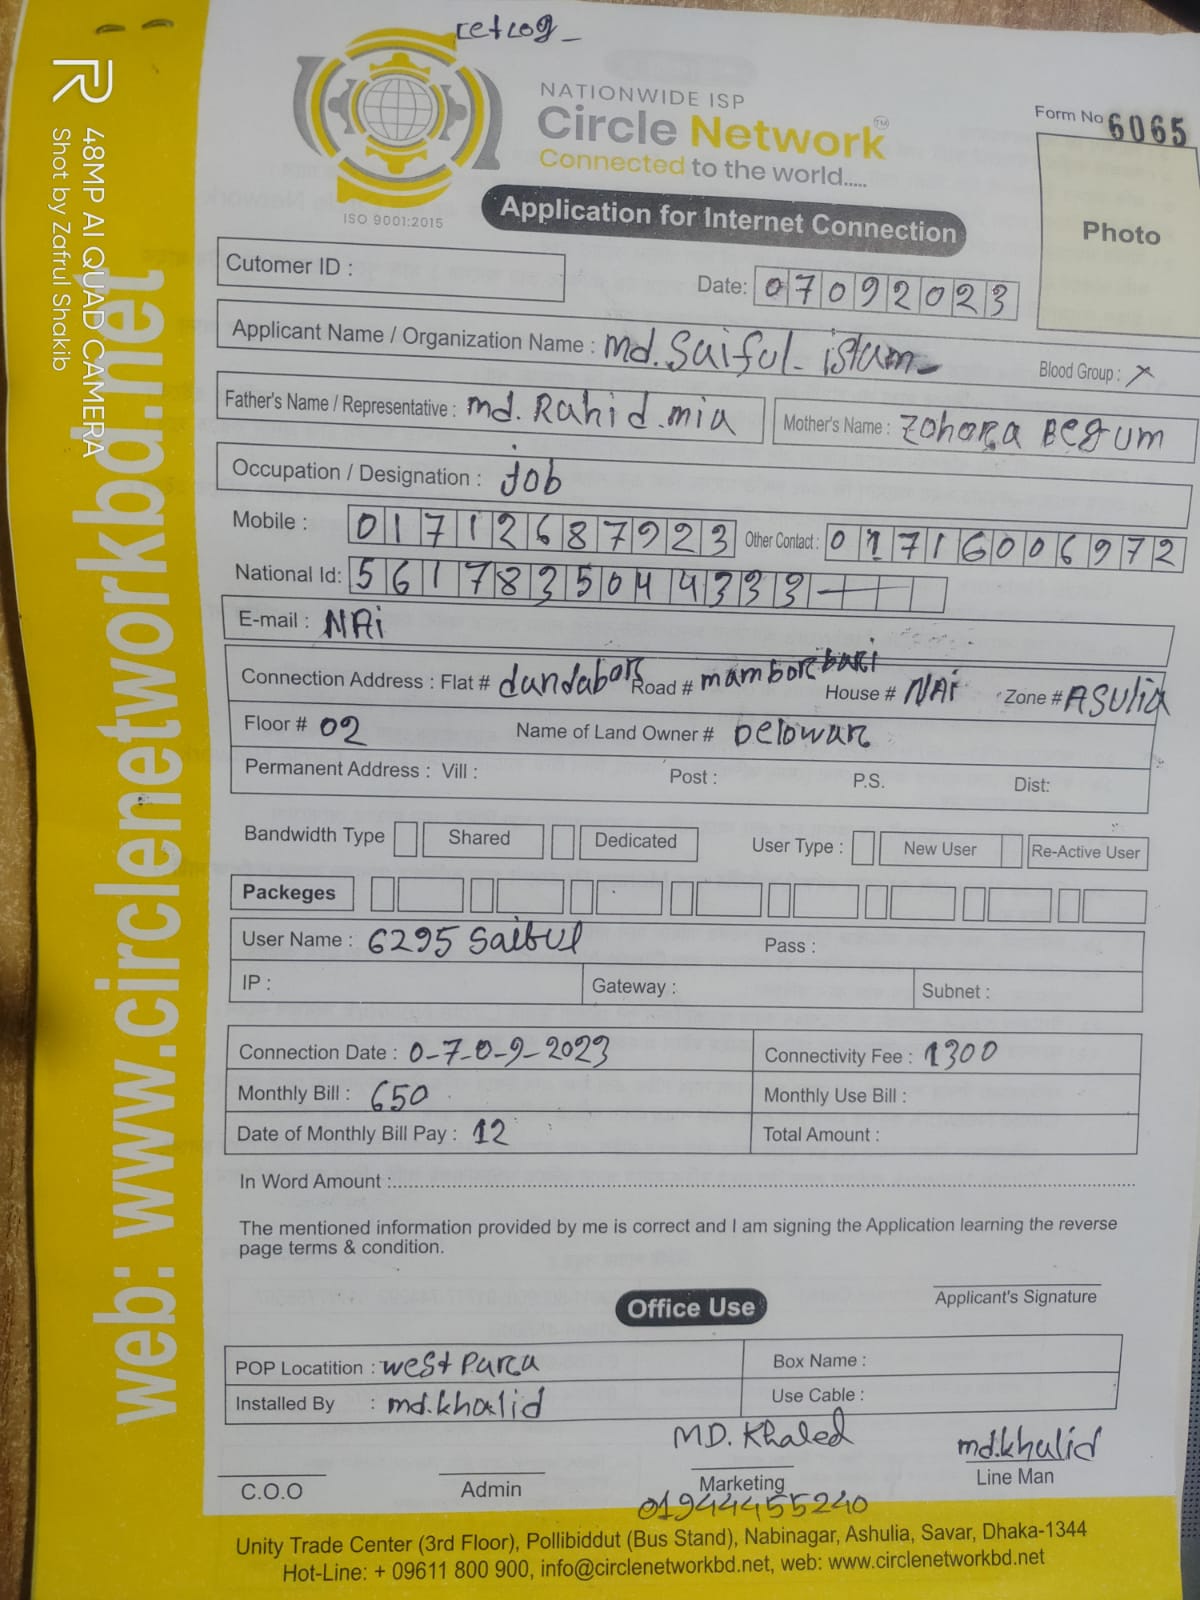 NATIONWIDE ISP
Circle Network™
Connected to the world.....
ISO 9001:2015
Form No 6065
Photo
Application for Internet Connection
Cutomer ID :
Date: 07092023
Applicant Name / Organization Name : md. Saiful islam
Blood Group : X
Father's Name / Representative : md. Rahid mia
Mother's Name : Zohora Begum
Occupation / Designation : job
Mobile : 01712687923 Other Contact : 01716006972
National Id: 5617835044333
E-mail : NAi
Connection Address : Flat # dandabor Road # mambor bari House # NAi Zone # ASulia
Floor # 02 Name of Land Owner # Delowar
Permanent Address : Vill : Post : P.S. Dist:
Bandwidth Type Shared Dedicated User Type : New User Re-Active User
Packeges
User Name : 6295 Saiful Pass :
IP : Gateway : Subnet :
Connection Date : 0-7-0-9-2023 Connectivity Fee : 1300
Monthly Bill : 650 Monthly Use Bill :
Date of Monthly Bill Pay : 12 Total Amount :
In Word Amount :
The mentioned information provided by me is correct and I am signing the Application learning the reverse
page terms & condition.
Applicant's Signature
Office Use
POP Locatition : West Para Box Name :
Installed By : md.khalid Use Cable :
MD. Khaled md.khalid
C.O.O Admin Marketing Line Man
01944455240
Unity Trade Center (3rd Floor), Pollibiddut (Bus Stand), Nabinagar, Ashulia, Savar, Dhaka-1344
Hot-Line: + 09611 800 900, info@circlenetworkbd.net, web: www.circlenetworkbd.net
web: www.circlenetworkbd.net
48MP AI QUAD CAMERA
Shot by Zafrul Shakib